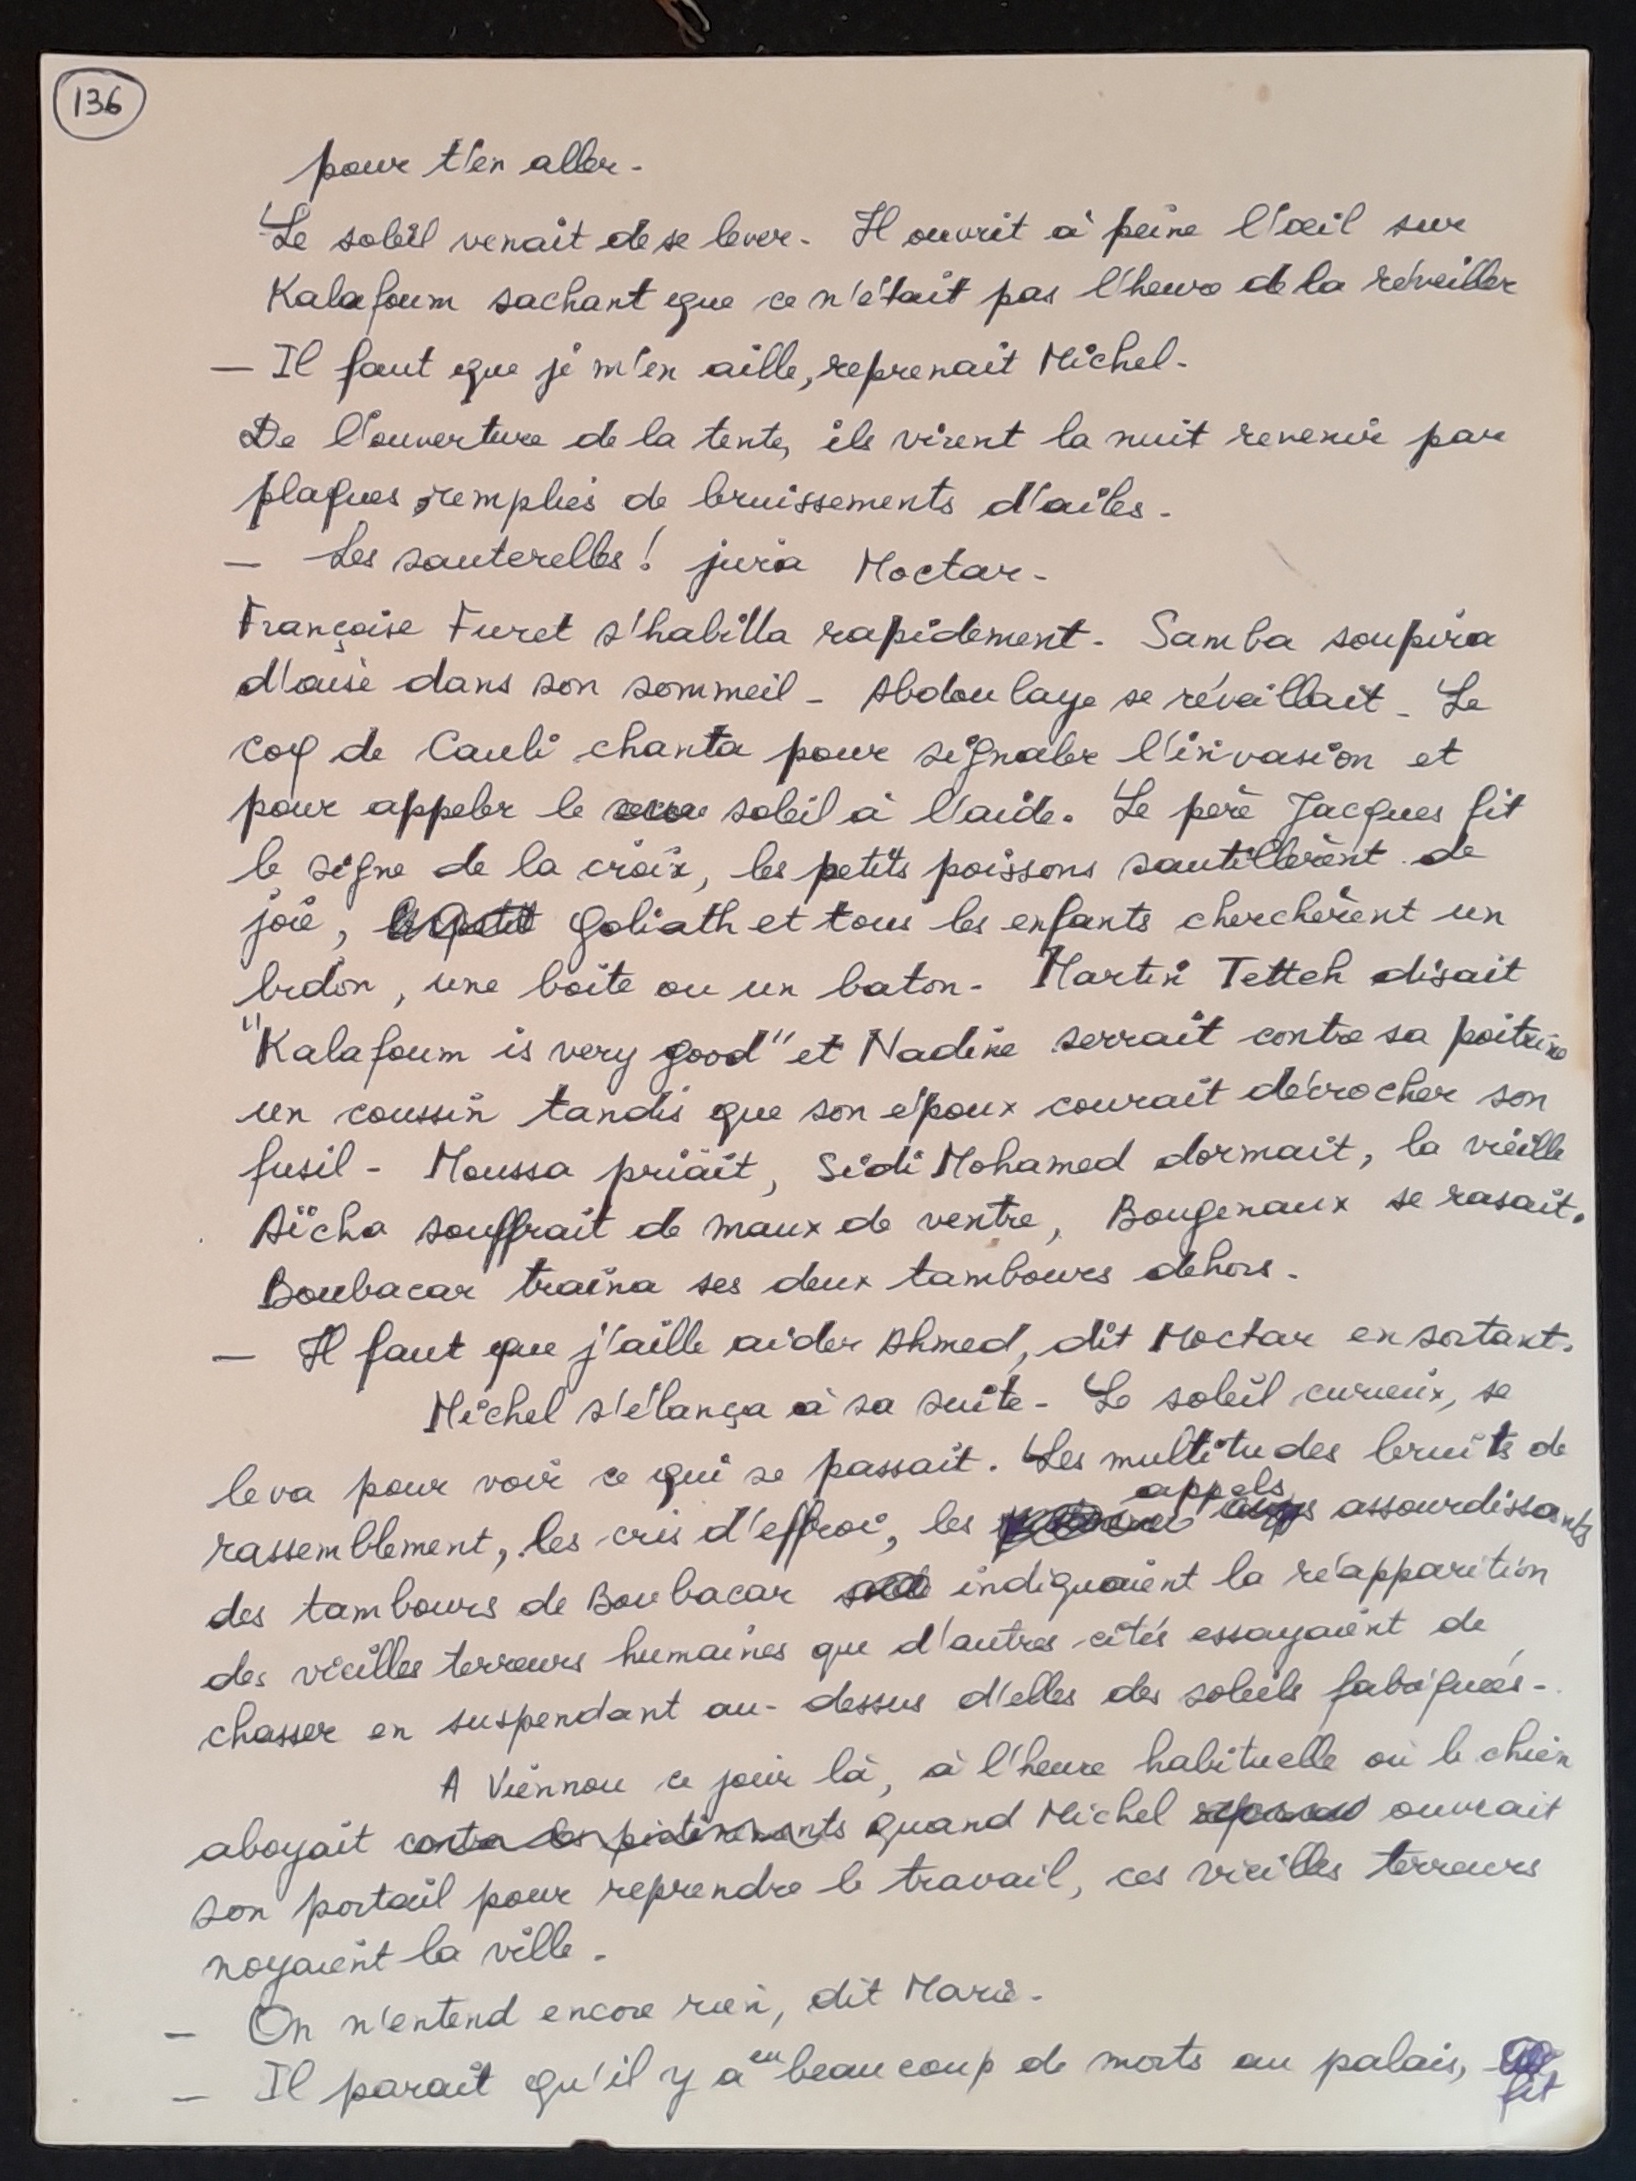 136
pour t'en aller.
Le soleil venait de se lever. Il ouvrit à peine l'œil sur
Kalafoum sachant que ce n'était pas l'heure de la réveiller
— Il faut que je m'en aille, reprenait Michel.
De l'ouverture de la tente, ils virent la nuit revenir par
plaques remplies de bruissements d'ailes.
— Les sauterelles ! jura Moctar.
Françoise Furet s'habilla rapidement. Samba soupira
d'aise dans son sommeil. Abdoulaye se réveillait. Le
coq de Cauli chanta pour signaler l'invasion et
pour appeler le soleil à l'aide. Le père Jacques fit
le signe de la croix, les petits poissons sautillèrent de
joie, le petit Goliath et tous les enfants cherchèrent un
bidon, une boite ou un baton. Martin Tetteh disait
"Kalafoum is very good" et Nadine serrait contre sa poitrine
un coussin tandis que son époux courait décrocher son
fusil. Moussa priait, Sidi Mohamed dormait, la vieille
Aïcha souffrait de maux de ventre, Bougenaux se rasait.
Boubacar traîna ses deux tambours dehors.
— Il faut que j'aille aider Ahmed, dit Moctar en sortant.
Michel s'élança à sa suite. Le soleil curieux, se
leva pour voir ce qui se passait. Les multitudes bruits de
rassemblement, les cris d'effroi, les appels assourdissants
des tambours de Boubacar indiquaient la réapparition
des vieilles terreurs humaines que d'autres cités essayaient de
chasser en suspendant au-dessus d'elles des soleils fabriqués.
A Viennou ce jour là, à l'heure habituelle où le chien
aboyait contre les piétinements quand Michel ouvrait
son portail pour reprendre le travail, ces vieilles terreurs
noyaient la ville.
— On n'entend encore rien, dit Marie.
— Il parait qu'il y a eu beaucoup de morts au palais, fit